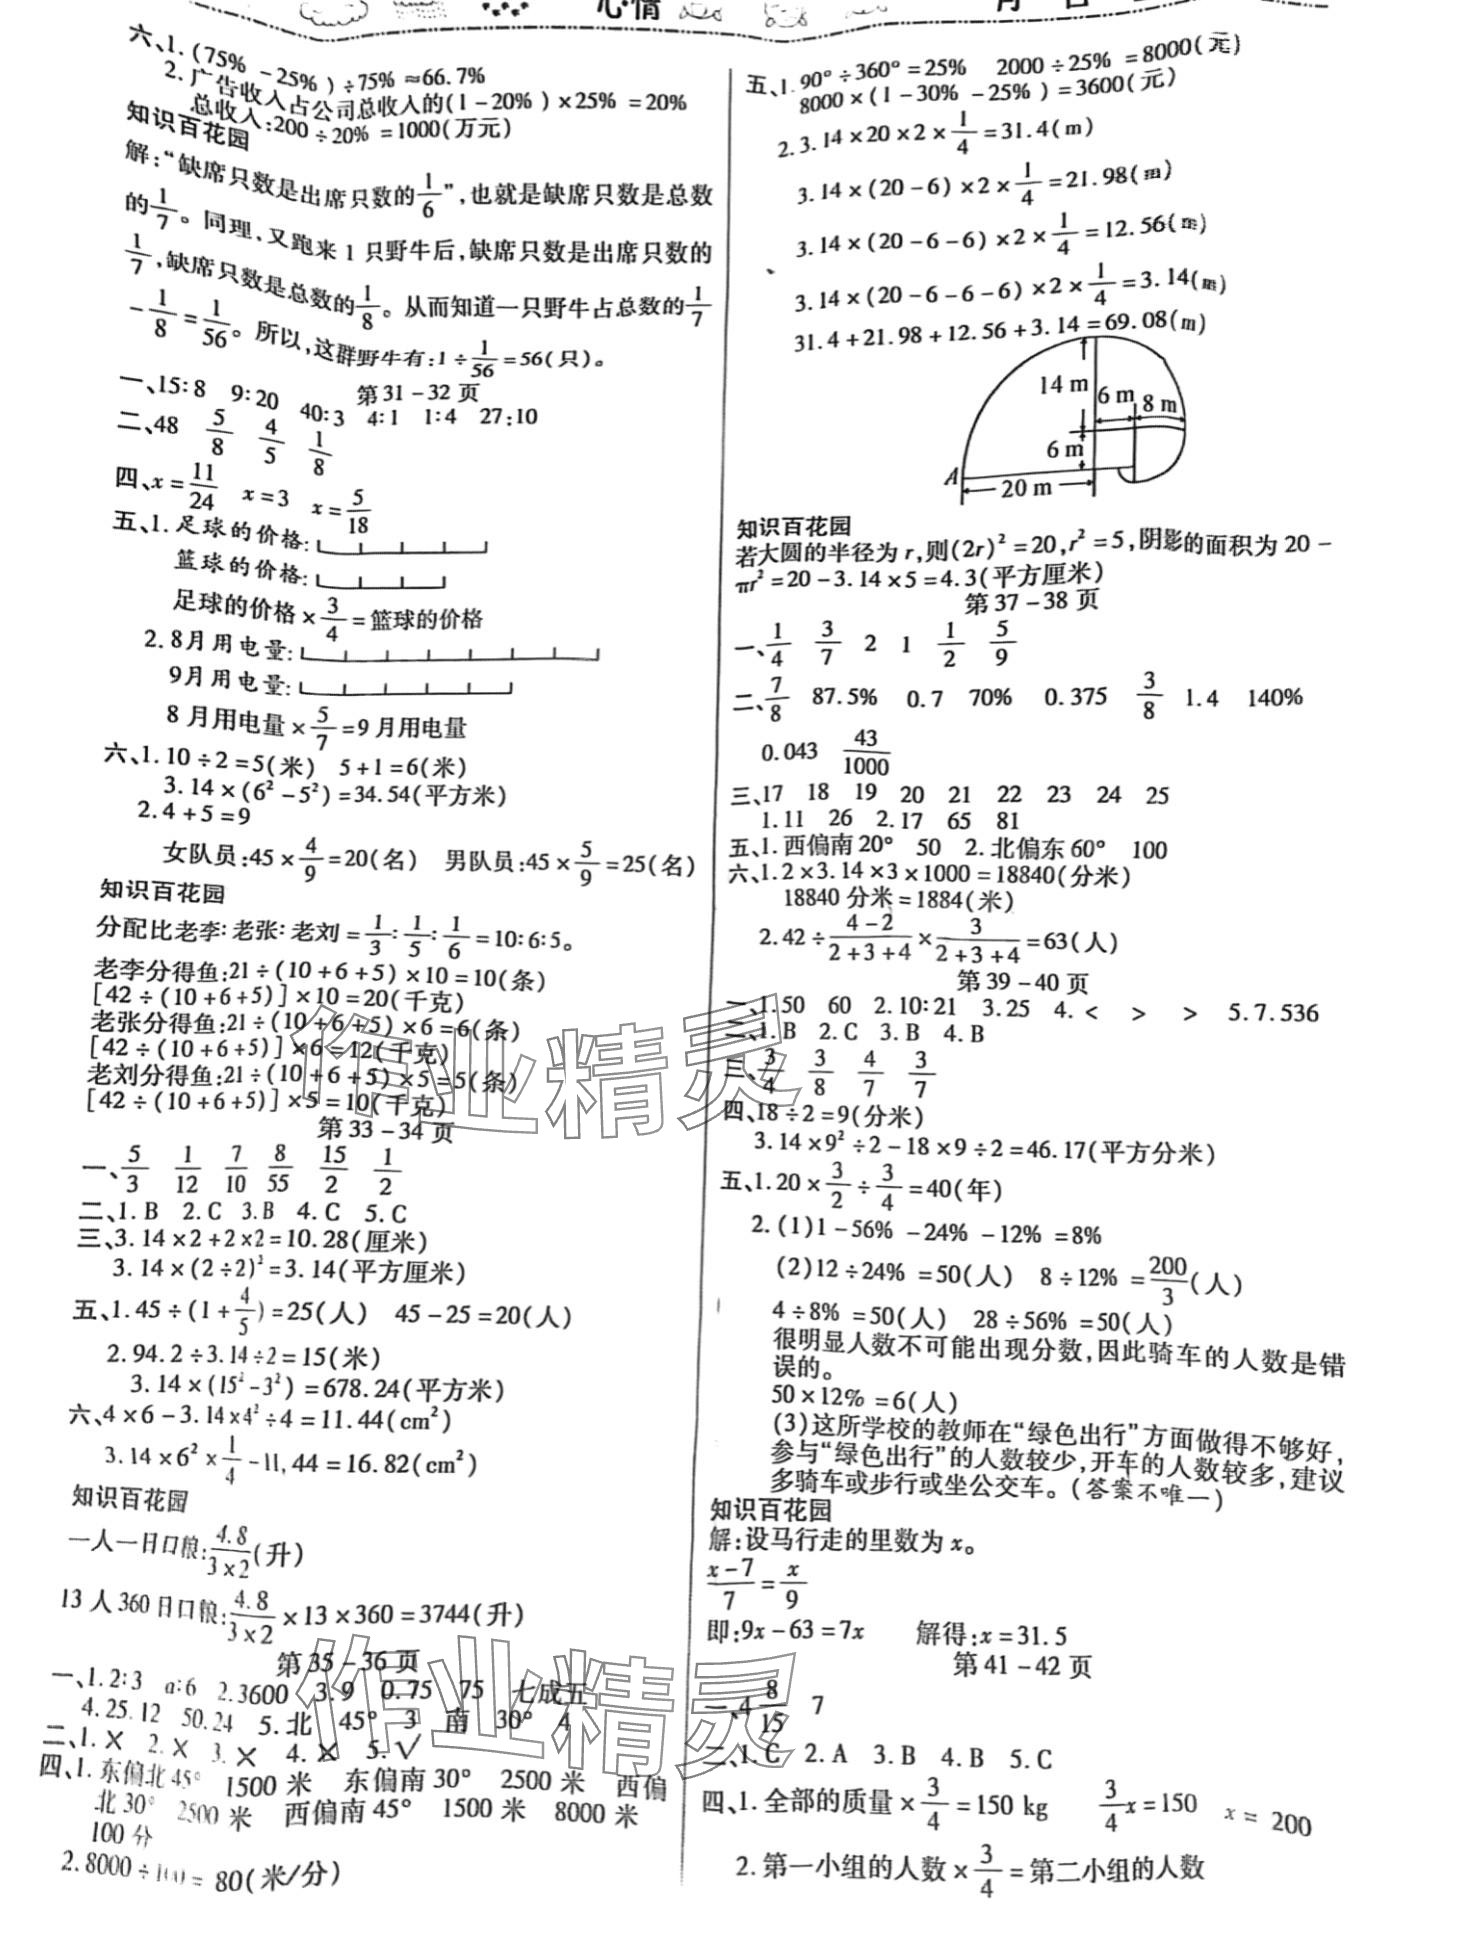 心情
月 日
六、1. (75% - 25%) ÷ 75% ≈ 66.7%
2. 广告收入占公司总收入的(1 - 20%) × 25% = 20%
总收入:200 ÷ 20% = 1000(万元)
知识百花园
解:“缺席只数是出席只数的1/6”,也就是缺席只数是总数
的1/7。同理,又跑来1只野牛后,缺席只数是出席只数的
1/7,缺席只数是总数的1/8。从而知道一只野牛占总数的1/7
- 1/8 = 1/56。所以,这群野牛有:1 ÷ 1/56 = 56(只)。
第 31 - 32 页
一、15:8 9:20 40:3 4:1 1:4 27:10
二、48 5/8 4/5 1/8
四、x = 11/24 x = 3 x = 5/18
五、1. 足球的价格:
篮球的价格:
足球的价格 × 3/4 = 篮球的价格
2. 8月用电量:
9月用电量:
8月用电量 × 5/7 = 9月用电量
六、1. 10 ÷ 2 = 5(米) 5 + 1 = 6(米)
3.14 × (6² - 5²) = 34.54(平方米)
2. 4 + 5 = 9
女队员:45 × 4/9 = 20(名) 男队员:45 × 5/9 = 25(名)
知识百花园
分配比老李:老张:老刘 = 1/3:1/5:1/6 = 10:6:5。
老李分得鱼:21 ÷ (10 + 6 + 5) × 10 = 10(条)
[42 ÷ (10 + 6 + 5)] × 10 = 20(千克)
老张分得鱼:21 ÷ (10 + 6 + 5) × 6 = 6(条)
[42 ÷ (10 + 6 + 5)] × 6 = 12(千克)
老刘分得鱼:21 ÷ (10 + 6 + 5) × 5 = 5(条)
[42 ÷ (10 + 6 + 5)] × 5 = 10(千克)
第 33 - 34 页
一、5/3 1/12 7/10 8/55 15/2 1/2
二、1. B 2. C 3. B 4. C 5. C
三、3.14 × 2 + 2 × 2 = 10.28(厘米)
3.14 × (2 ÷ 2)² = 3.14(平方厘米)
五、1. 45 ÷ (1 + 4/5) = 25(人) 45 - 25 = 20(人)
2. 94.2 ÷ 3.14 ÷ 2 = 15(米)
3.14 × (15² - 3²) = 678.24(平方米)
六、4 × 6 - 3.14 × 4² ÷ 4 = 11.44(cm²)
3.14 × 6² × 1/4 - 11,44 = 16.82(cm²)
知识百花园
一人一日口粮:4.8/(3 × 2)(升)
13人360日口粮:4.8/(3 × 2) × 13 × 360 = 3744(升)
第 35 - 36 页
一、1. 2:3 a:6 2. 3600 3. 9 0.75 75 七成五
4. 25. 12 50. 24 5. 北 45° 3 南 30° 4
二、1. × 2. × 3. × 4. × 5. √
四、1. 东偏北45° 1500米 东偏南30° 2500米 西偏
北30° 2500米 西偏南45° 1500米 8000米
100分
2. 8000 ÷ 100 = 80(米/分)
五、1. 90° ÷ 360° = 25% 2000 ÷ 25% = 8000(元)
8000 × (1 - 30% - 25%) = 3600(元)
2. 3.14 × 20 × 2 × 1/4 = 31.4(m)
3.14 × (20 - 6) × 2 × 1/4 = 21.98(m)
3.14 × (20 - 6 - 6) × 2 × 1/4 = 12.56(m)
3.14 × (20 - 6 - 6 - 6) × 2 × 1/4 = 3.14(m)
31.4 + 21.98 + 12.56 + 3.14 = 69.08(m)
14 m
6 m
8 m
6 m
A
20 m
知识百花园
若大圆的半径为r,则(2r)² = 20,r² = 5,阴影的面积为20 -
πr² = 20 - 3.14 × 5 = 4.3(平方厘米)
第 37 - 38 页
一、1/4 3/7 2 1 1/2 5/9
二、7/8 87.5% 0.7 70% 0.375 3/8 1.4 140%
0.043 43/1000
三、17 18 19 20 21 22 23 24 25
1. 11 26 2. 17 65 81
五、1. 西偏南20° 50 2. 北偏东60° 100
六、1. 2 × 3.14 × 3 × 1000 = 18840(分米)
18840分米 = 1884(米)
2. 42 ÷ (4 - 2)/(2 + 3 + 4) × 3/(2 + 3 + 4) = 63(人)
第 39 - 40 页
一、1. 50 60 2. 10:21 3. 25 4. < > > 5. 7.536
二、1. B 2. C 3. B 4. B
三、3/4 3/8 4/7 3/7
四、18 ÷ 2 = 9(分米)
3.14 × 9² ÷ 2 - 18 × 9 ÷ 2 = 46.17(平方分米)
五、1. 20 × 3/2 ÷ 3/4 = 40(年)
2. (1) 1 - 56% - 24% - 12% = 8%
(2) 12 ÷ 24% = 50(人) 8 ÷ 12% = 200/3(人)
4 ÷ 8% = 50(人) 28 ÷ 56% = 50(人)
很明显人数不可能出现分数,因此骑车的人数是错
误的。
50 × 12% = 6(人)
(3)这所学校的教师在“绿色出行”方面做得不够好,
参与“绿色出行”的人数较少,开车的人数较多,建议
多骑车或步行或坐公交车。(答案不唯一)
知识百花园
解:设马行走的里数为x。
(x - 7)/7 = x/9
即:9x - 63 = 7x 解得:x = 31.5
第 41 - 42 页
一、4 8/15 7
二、1. C 2. A 3. B 4. B 5. C
四、1. 全部的质量 × 3/4 = 150 kg 3/4x = 150 x = 200
2. 第一小组的人数 × 3/4 = 第二小组的人数
作业精灵
作业精灵